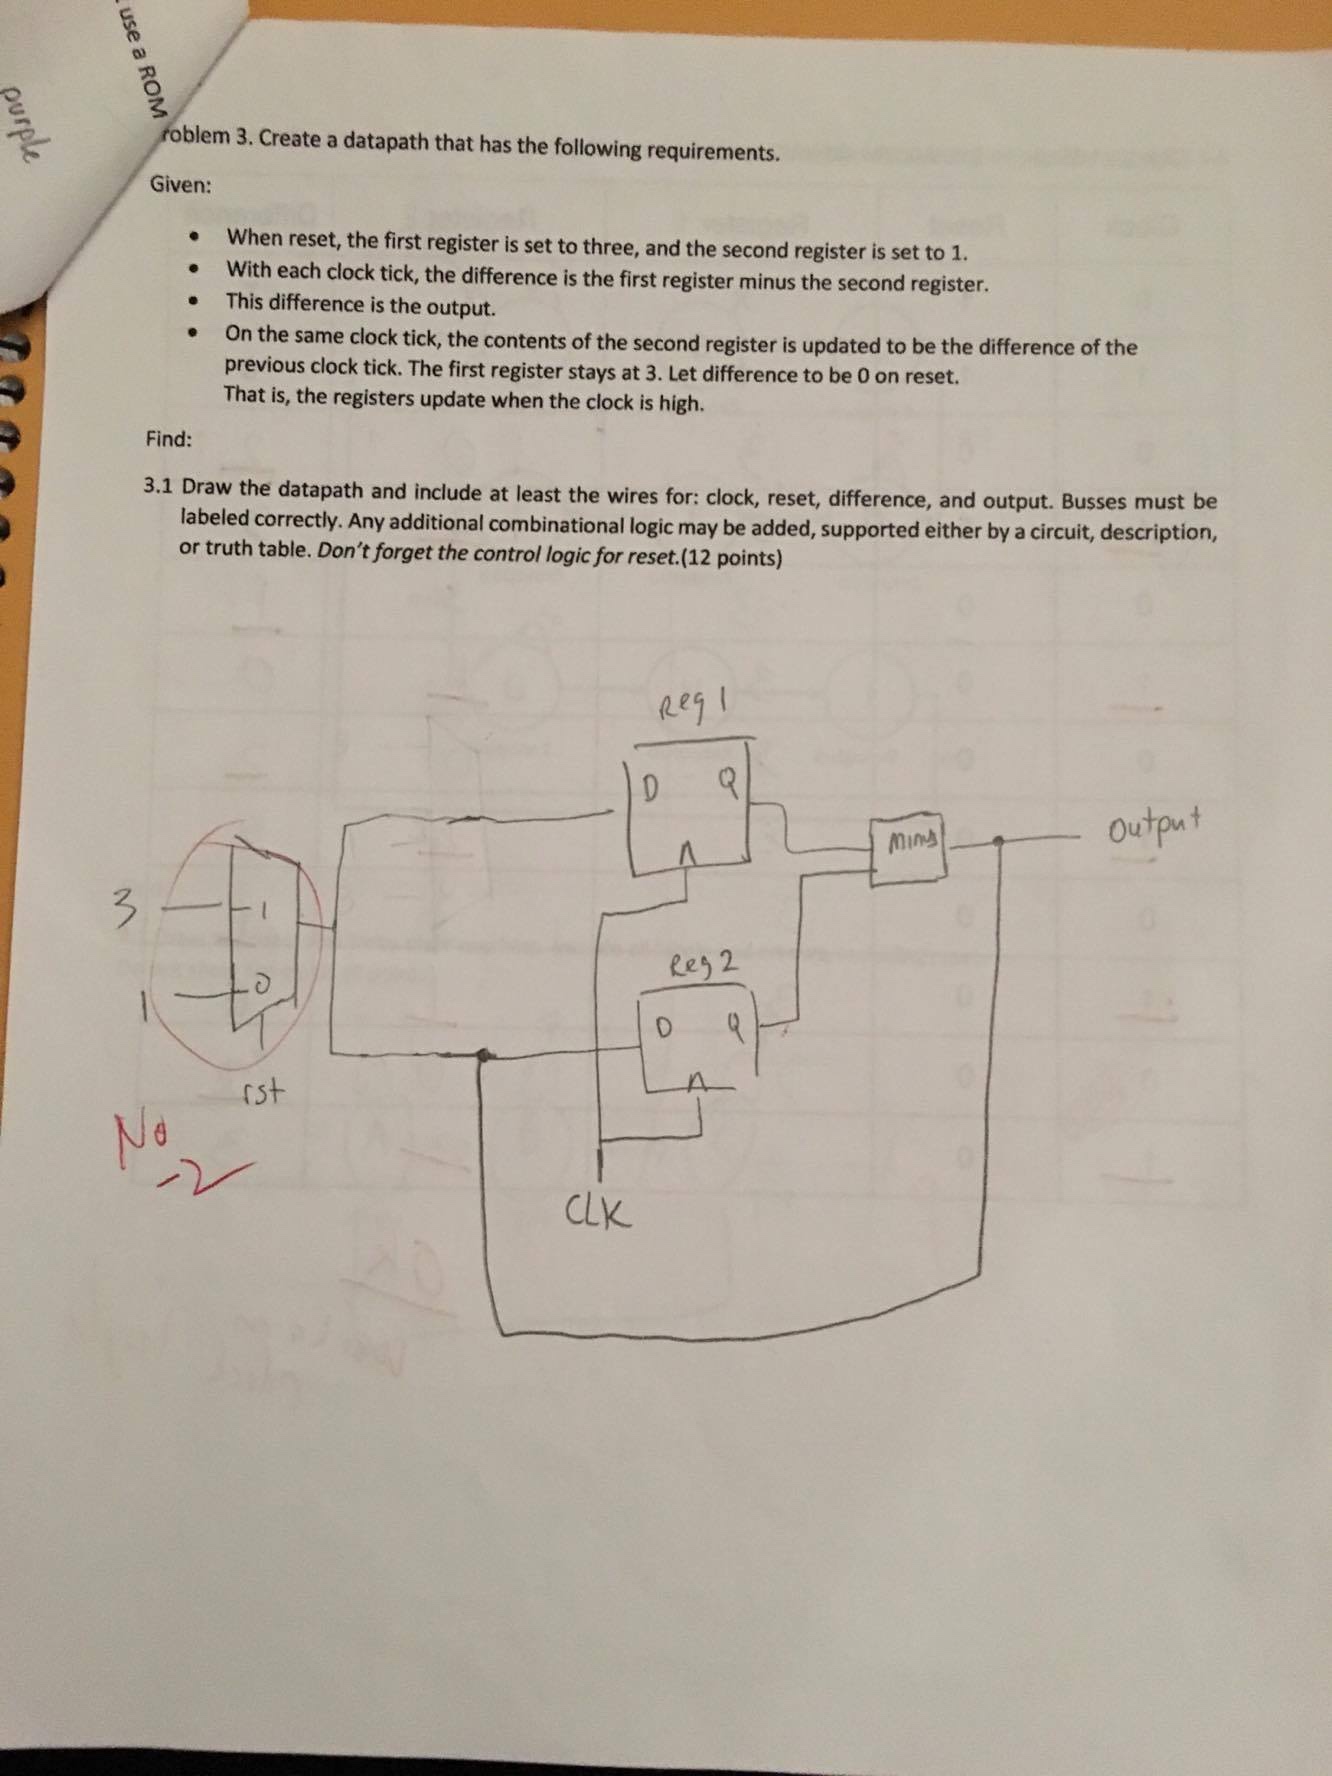 use a ROM
purple
roblem 3. Create a datapath that has the following requirements.
Given:
• When reset, the first register is set to three, and the second register is set to 1.
• With each clock tick, the difference is the first register minus the second register.
• This difference is the output.
• On the same clock tick, the contents of the second register is updated to be the difference of the
previous clock tick. The first register stays at 3. Let difference to be 0 on reset.
That is, the registers update when the clock is high.
Find:
3.1 Draw the datapath and include at least the wires for: clock, reset, difference, and output. Busses must be
labeled correctly. Any additional combinational logic may be added, supported either by a circuit, description,
or truth table. Don't forget the control logic for reset.(12 points)
Reg 1
D Q
minus
output
3
1
1
0
rst
Reg 2
D Q
No
-2
CLK